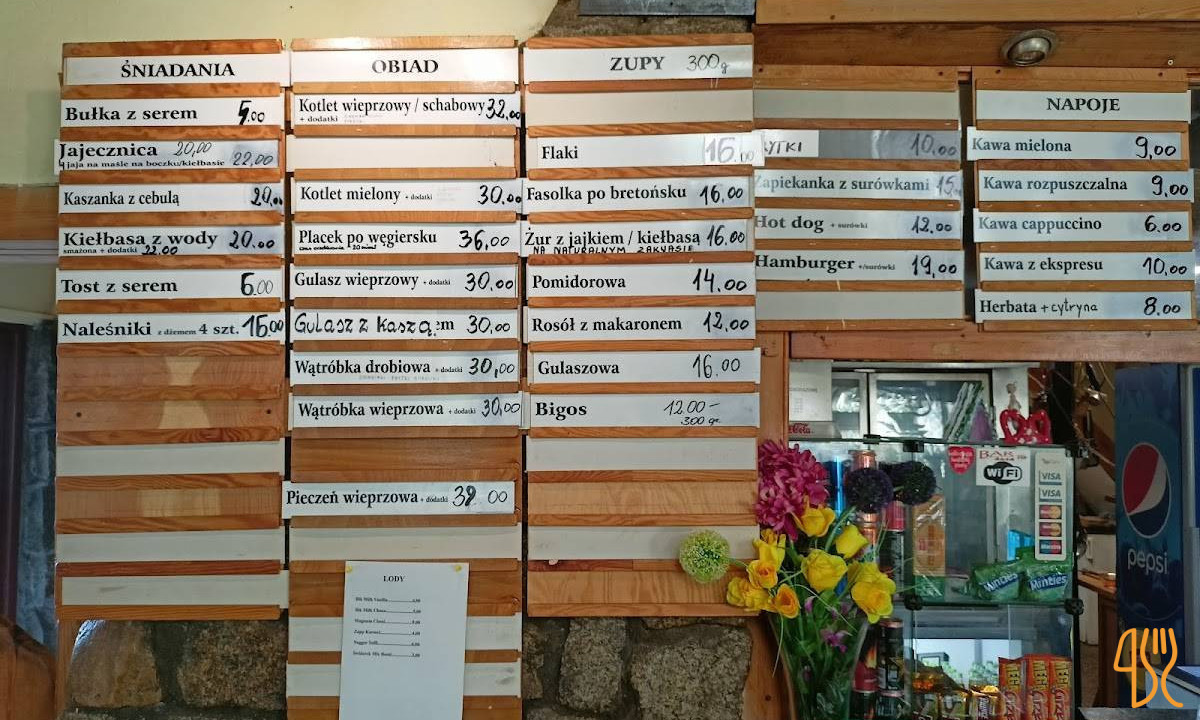 ŚNIADANIA
Bułka z serem 5.00
Jajecznica 20,00
4 jaja na maśle na boczku/kiełbasie 22,00
Kaszanka z cebulą 20,00
Kiełbasa z wody 20.00
smażona + dodatki 22.00
Tost z serem 6.00
Naleśniki z dżemem 4 szt. 16.00
OBIAD
Kotlet wieprzowy / schabowy 32,00
+ dodatki
Kotlet mielony + dodatki 30.00
Placek po węgiersku 36,00
Gulasz wieprzowy + dodatki 30,00
Gulasz z kaszą 30,00
Wątróbka drobiowa + dodatki 30,00
Wątróbka wieprzowa + dodatki 30,00
Pieczeń wieprzowa + dodatki 00
LODY
ZUPY 300g
Flaki 16.00
Fasolka po bretońsku 16,00
Żur z jajkiem / kiełbasą 16.00
NA NATURALNYM ZAKWASIE
Pomidorowa 14.00
Rosół z makaronem 12,00
Gulaszowa 16.00
Bigos 12.00-
300 gr.
10.00
Zapiekanka z surówkami 15
Hot dog + surówki 12.00
Hamburger +/surówki 19,00
NAPOJE
Kawa mielona 9,00
Kawa rozpuszczalna 9,00
Kawa cappuccino 6.00
Kawa z ekspresu 10,00
Herbata + cytryna 8.00
BAR
WiFi
VISA
VISA
pepsi
Minties
Minties